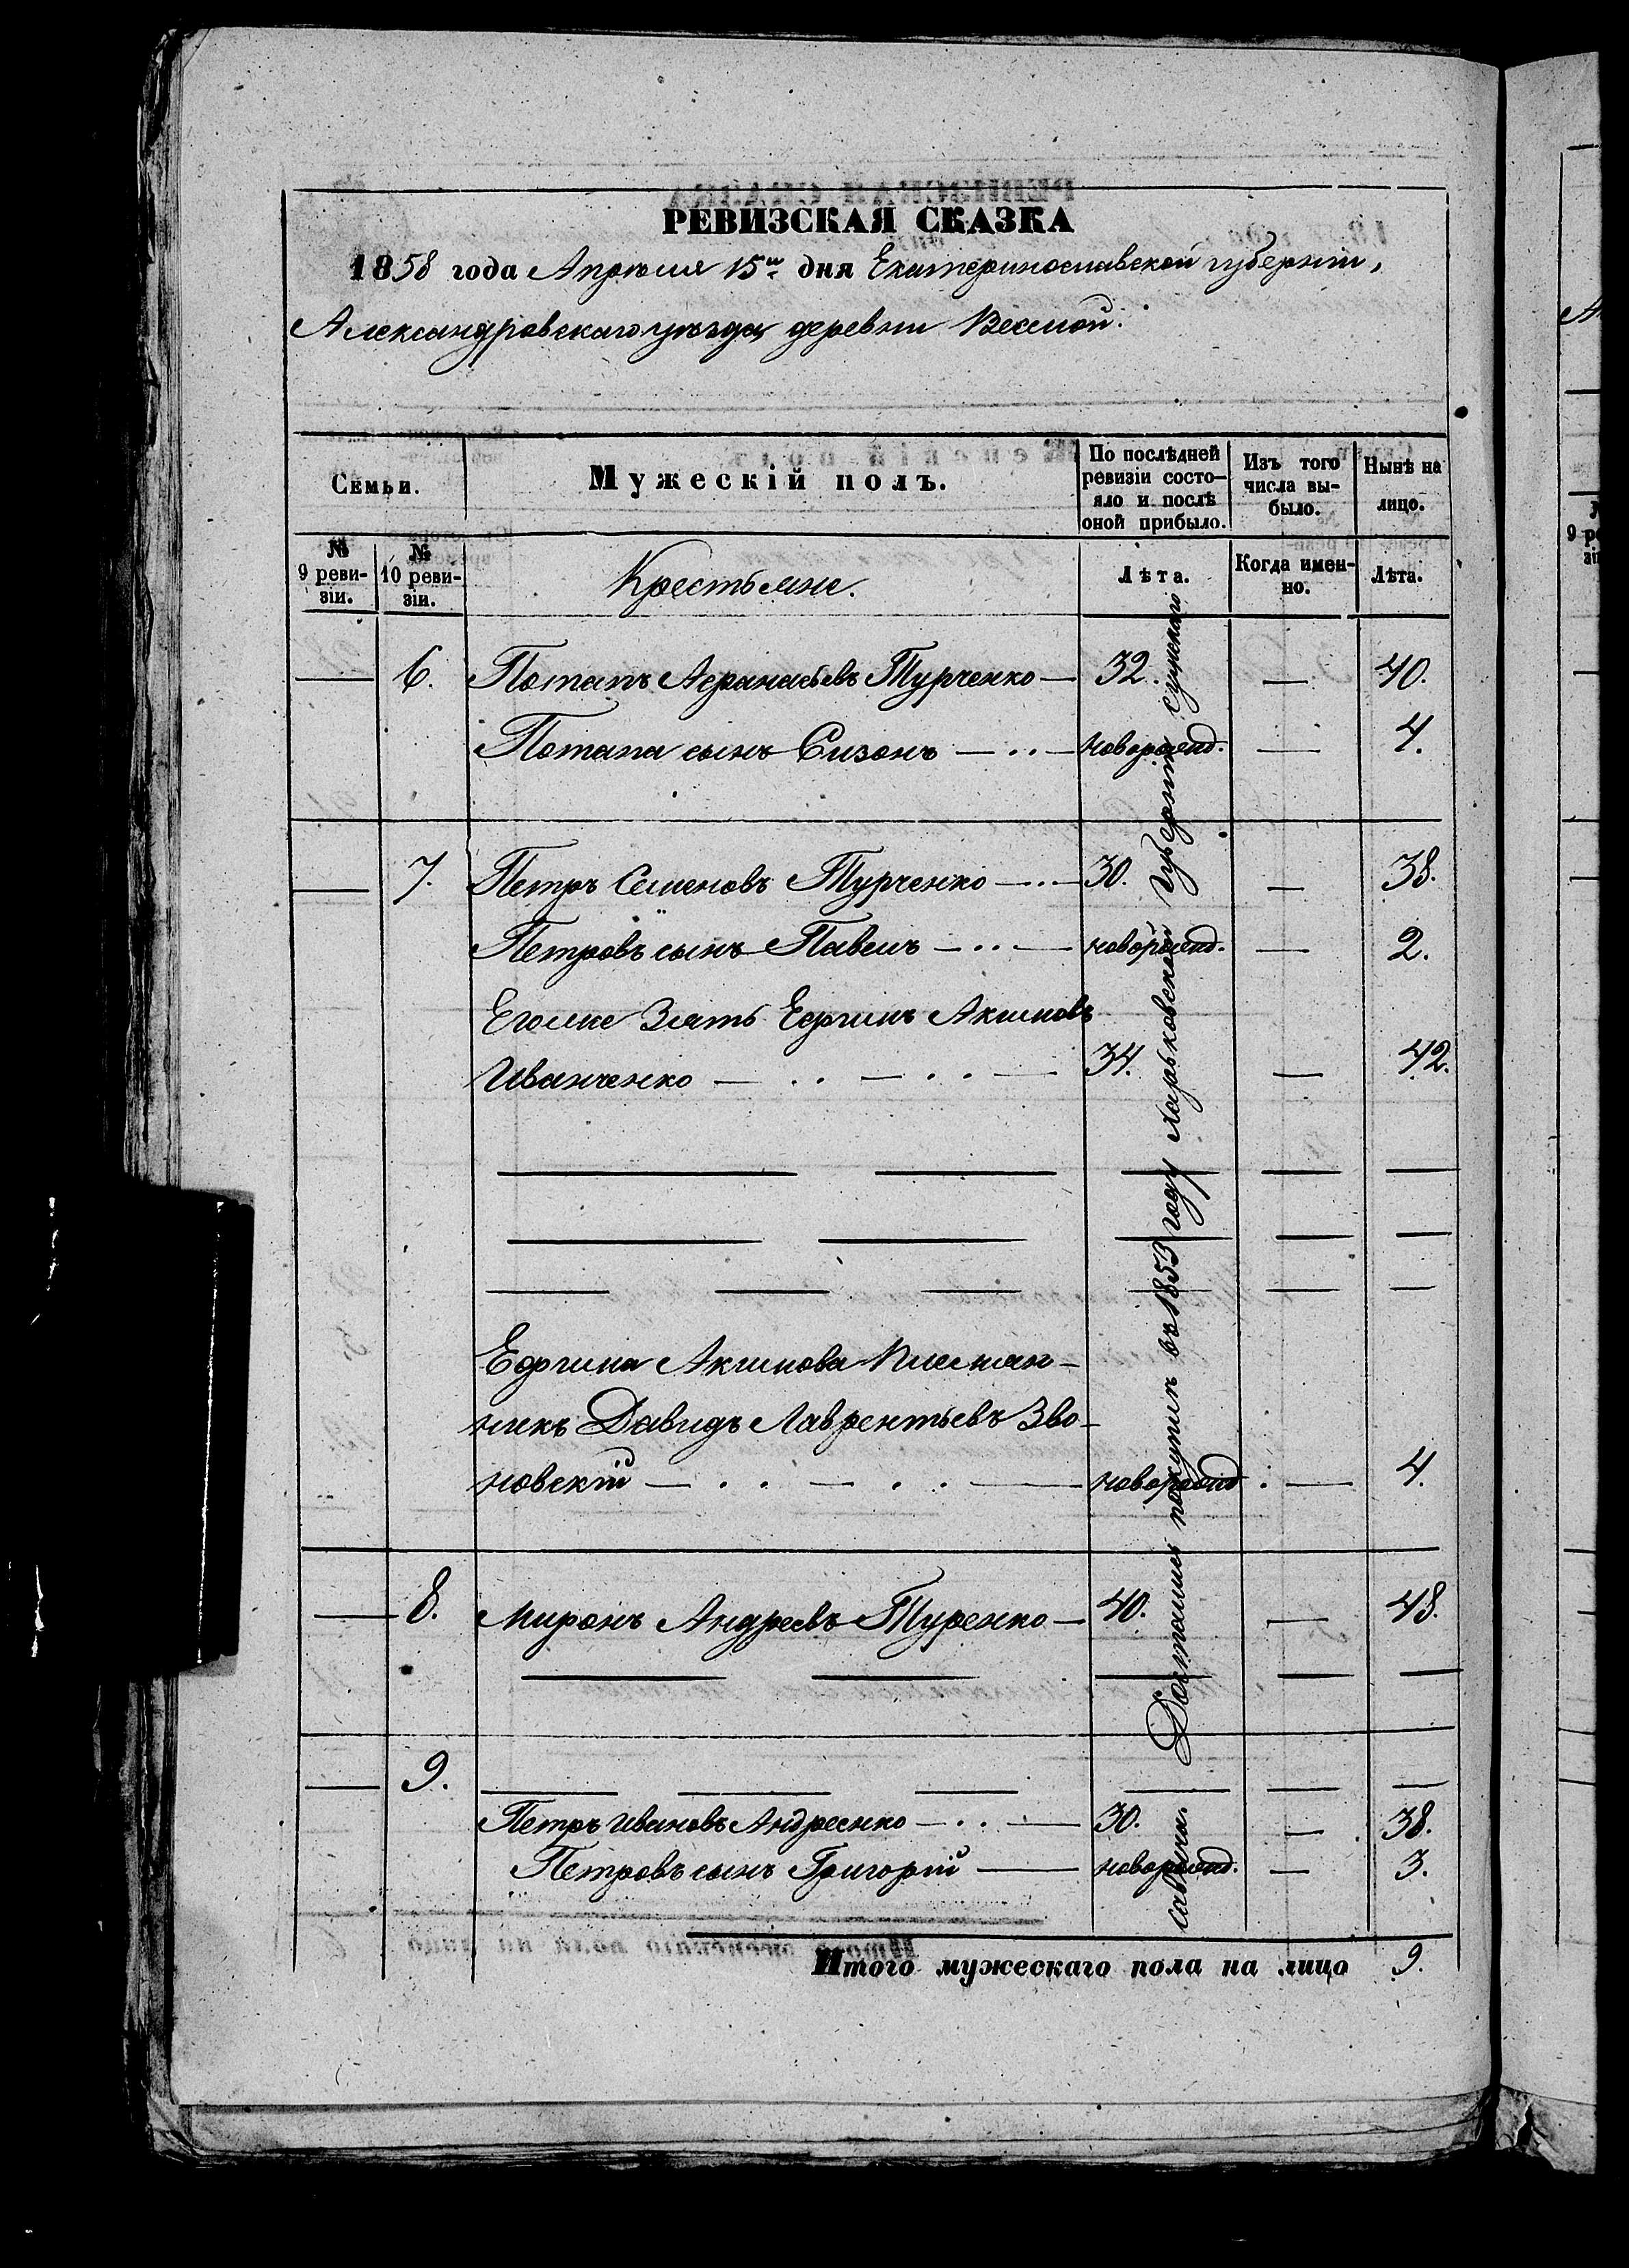 РЕВИЗСКАЯ СКАЗКА
1858 года Апрѣля 15го дня Екатеринославской губерніи,
Александровскаго уѣзда, деревни Веселой.
Семьи.
Мужескій полъ.
По послѣдней ревизіи состо-
яло и послѣ
оной прибыло.
Изъ того
числа вы-
было.
Нынѣ на
лицо.
№
9 реви-
зіи.
№
10 реви-
зіи.
Крестьяне.
Лѣта.
Когда имен-
но.
Лѣта.
6. Потапъ Афанасьевъ Турченко 32. 40.
Потапа сынъ Сизонъ новорожд. 4.
7. Петръ Семеновъ Турченко 30. 38.
Петровъ сынъ Павелъ новорожд. 2.
Егоже Зять Ефимъ Акимовъ
Иванченко 34. 42.
Ефима Акимова Племян-
никъ Давидъ Лаврентьевъ Зво-
новскій новорожд. 4.
8. Миронъ Андреевъ Туренко 40. 48.
9.
Петръ Ивановъ Андреенко 30. 38.
Петровъ сынъ Григорій новорожд. 3.
въ 1853 году Харьковской Губерніи Сумскаго
Итого мужескаго пола на лицо 9.